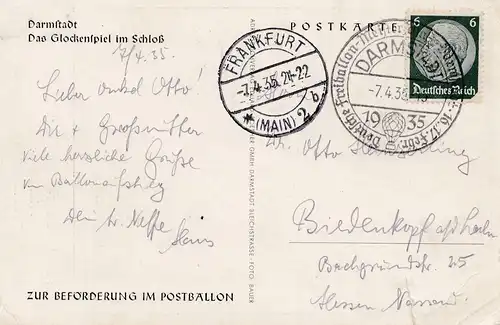 Darmstadt
Das Glockenspiel im Schloß
7/4.35.
Lieber Onkel Otto!
Dir & Großmutter
viele herzliche Grüße
vom Ballonaufstieg
Dein tr. Neffe
Hans
ZUR BEFÖRDERUNG IM POSTBALLON
POSTKARTE
FRANKFURT
-7.4.35.21-22
(MAIN) 2b
DARMSTADT
-7.4.35
1935
6 6
Deutsches Reich
GMBH DARMSTADT REICHSTRASSE · FOTO: BAUER
Dr. Otto
Biedenkopf a/d Lahn
Bachgrundstr. 25
Hessen Nassau